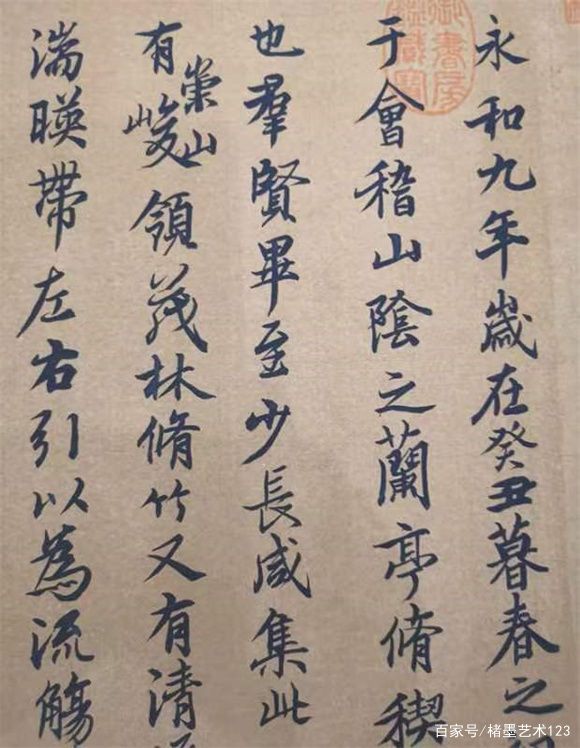 御書房
鑑藏寶
永和九年歲在癸丑暮春之
于會稽山陰之蘭亭脩稧
也羣賢畢至少長咸集此
有崇山峻領茂林脩竹又有清
湍暎帶左右引以為流觴
百家号/楮墨艺术123